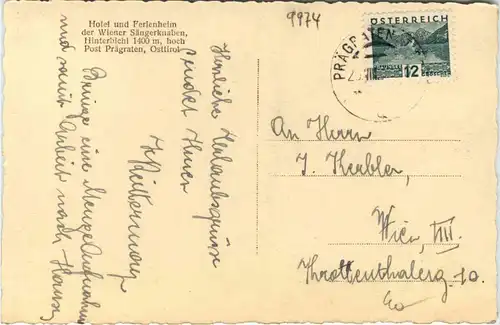 Hotel und Ferienheim
der Wiener Sängerknaben,
Hinterbichl 1400 m, hoch
Post Prägraten, Osttirol
9974
ÖSTERREICH
12
GROSCHEN
PRÄGRATEN
Herzliche Urlaubsgrüsse
sendet Ihnen
Bringe eine Menge Aufnahmen
und somit Arbeit nach Hause
An Herrn
J. Kerbler,
Wien, VIII.
10.